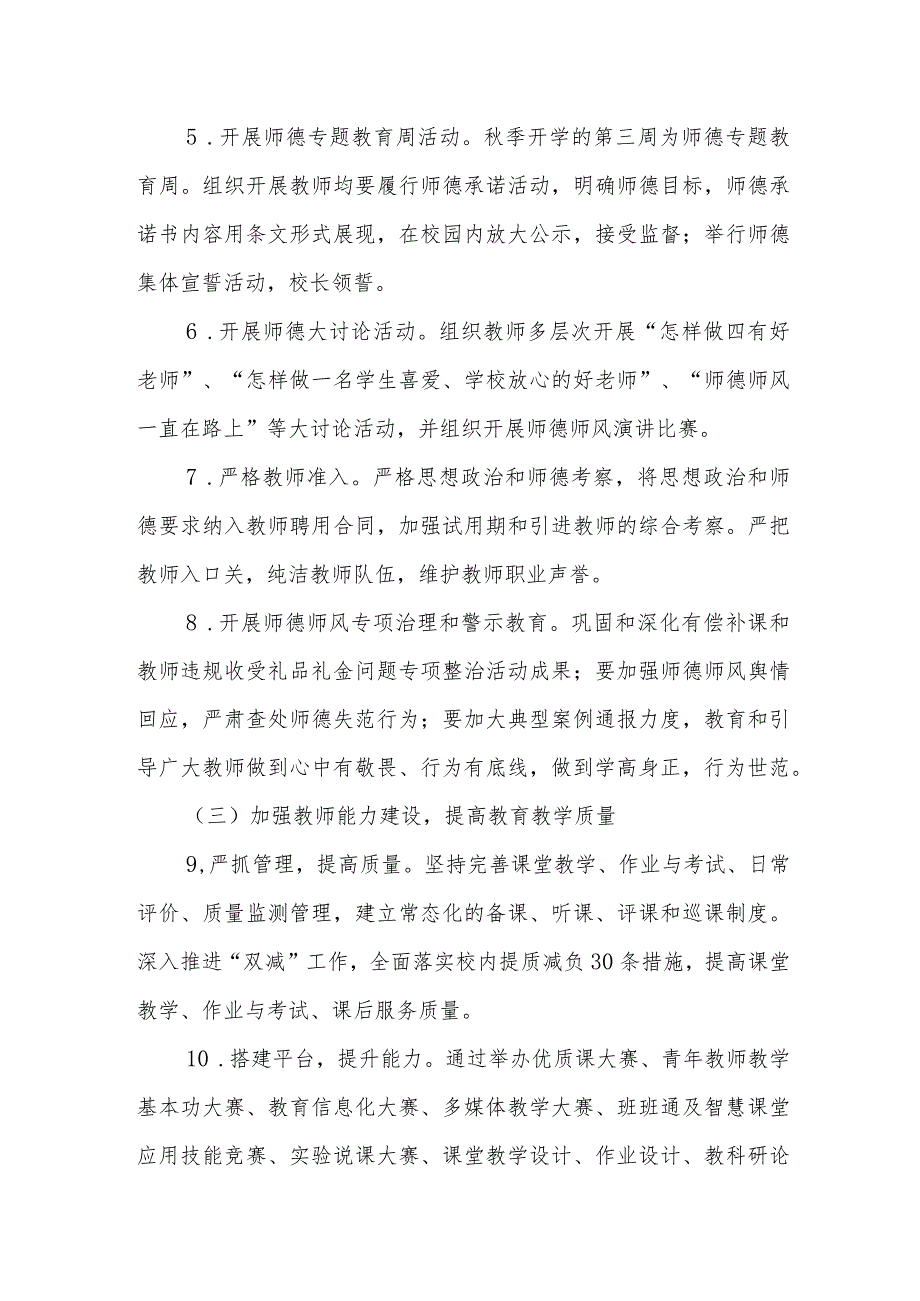 5 .开展师德专题教育周活动。秋季开学的第三周为师德专题教
育周。组织开展教师均要履行师德承诺活动，明确师德目标，师德承
诺书内容用条文形式展现，在校园内放大公示，接受监督；举行师德
集体宣誓活动，校长领誓。
6 .开展师德大讨论活动。组织教师多层次开展“怎样做四有好
老师”、“怎样做一名学生喜爱、学校放心的好老师”、“师德师风
一直在路上”等大讨论活动，并组织开展师德师风演讲比赛。
7 .严格教师准入。严格思想政治和师德考察，将思想政治和师
德要求纳入教师聘用合同，加强试用期和引进教师的综合考察。严把
教师入口关，纯洁教师队伍，维护教师职业声誉。
8 .开展师德师风专项治理和警示教育。巩固和深化有偿补课和
教师违规收受礼品礼金问题专项整治活动成果；要加强师德师风舆情
回应，严肃查处师德失范行为；要加大典型案例通报力度，教育和引
导广大教师做到心中有敬畏、行为有底线，做到学高身正，行为世范。
（三）加强教师能力建设，提高教育教学质量
9,严抓管理，提高质量。坚持完善课堂教学、作业与考试、日常
评价、质量监测管理，建立常态化的备课、听课、评课和巡课制度。
深入推进“双减”工作，全面落实校内提质减负30条措施，提高课堂
教学、作业与考试、课后服务质量。
10 .搭建平台，提升能力。通过举办优质课大赛、青年教师教学
基本功大赛、教育信息化大赛、多媒体教学大赛、班班通及智慧课堂
应用技能竞赛、实验说课大赛、课堂教学设计、作业设计、教科研论